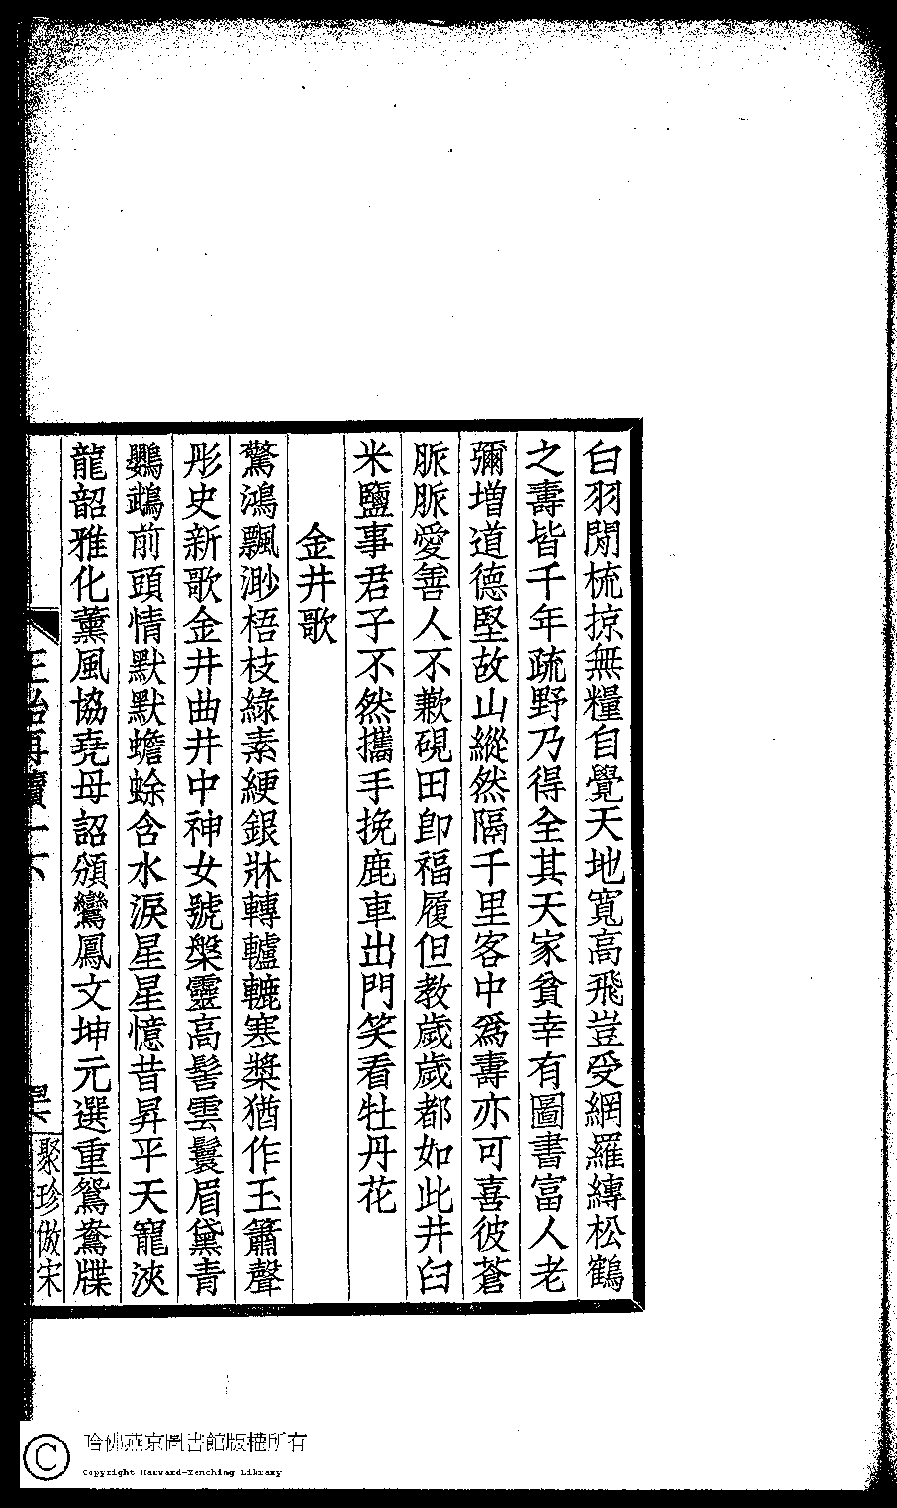 白羽閒梳掠無糧自覺天地寬高飛豈受網羅縛松鶴
之壽皆千年疏野乃得全其天家貧幸有圖書富人老
彌增道德堅故山縱然隔千里客中爲壽亦可喜彼蒼
脈脈愛善人不歉硯田卽福履但教歲歲都如此井臼
米鹽事君子不然攜手挽鹿車出門笑看牡丹花
金井歌
驚鴻飄渺梧枝綠素綆銀牀轉轤轆寒漿猶作玉簫聲
彤史新歌金井曲井中神女號槃靈高髻雲鬟眉黛青
鸚鵡前頭情默默蟾蜍含水淚星星憶昔昇平天寵浹
龍韶雅化薰風協堯母詔頒鸞鳳文坤元選重鴛鴦牒
聚珍倣宋
哈佛燕京圖書館版權所有
Copyright Harvard-Yenching Library